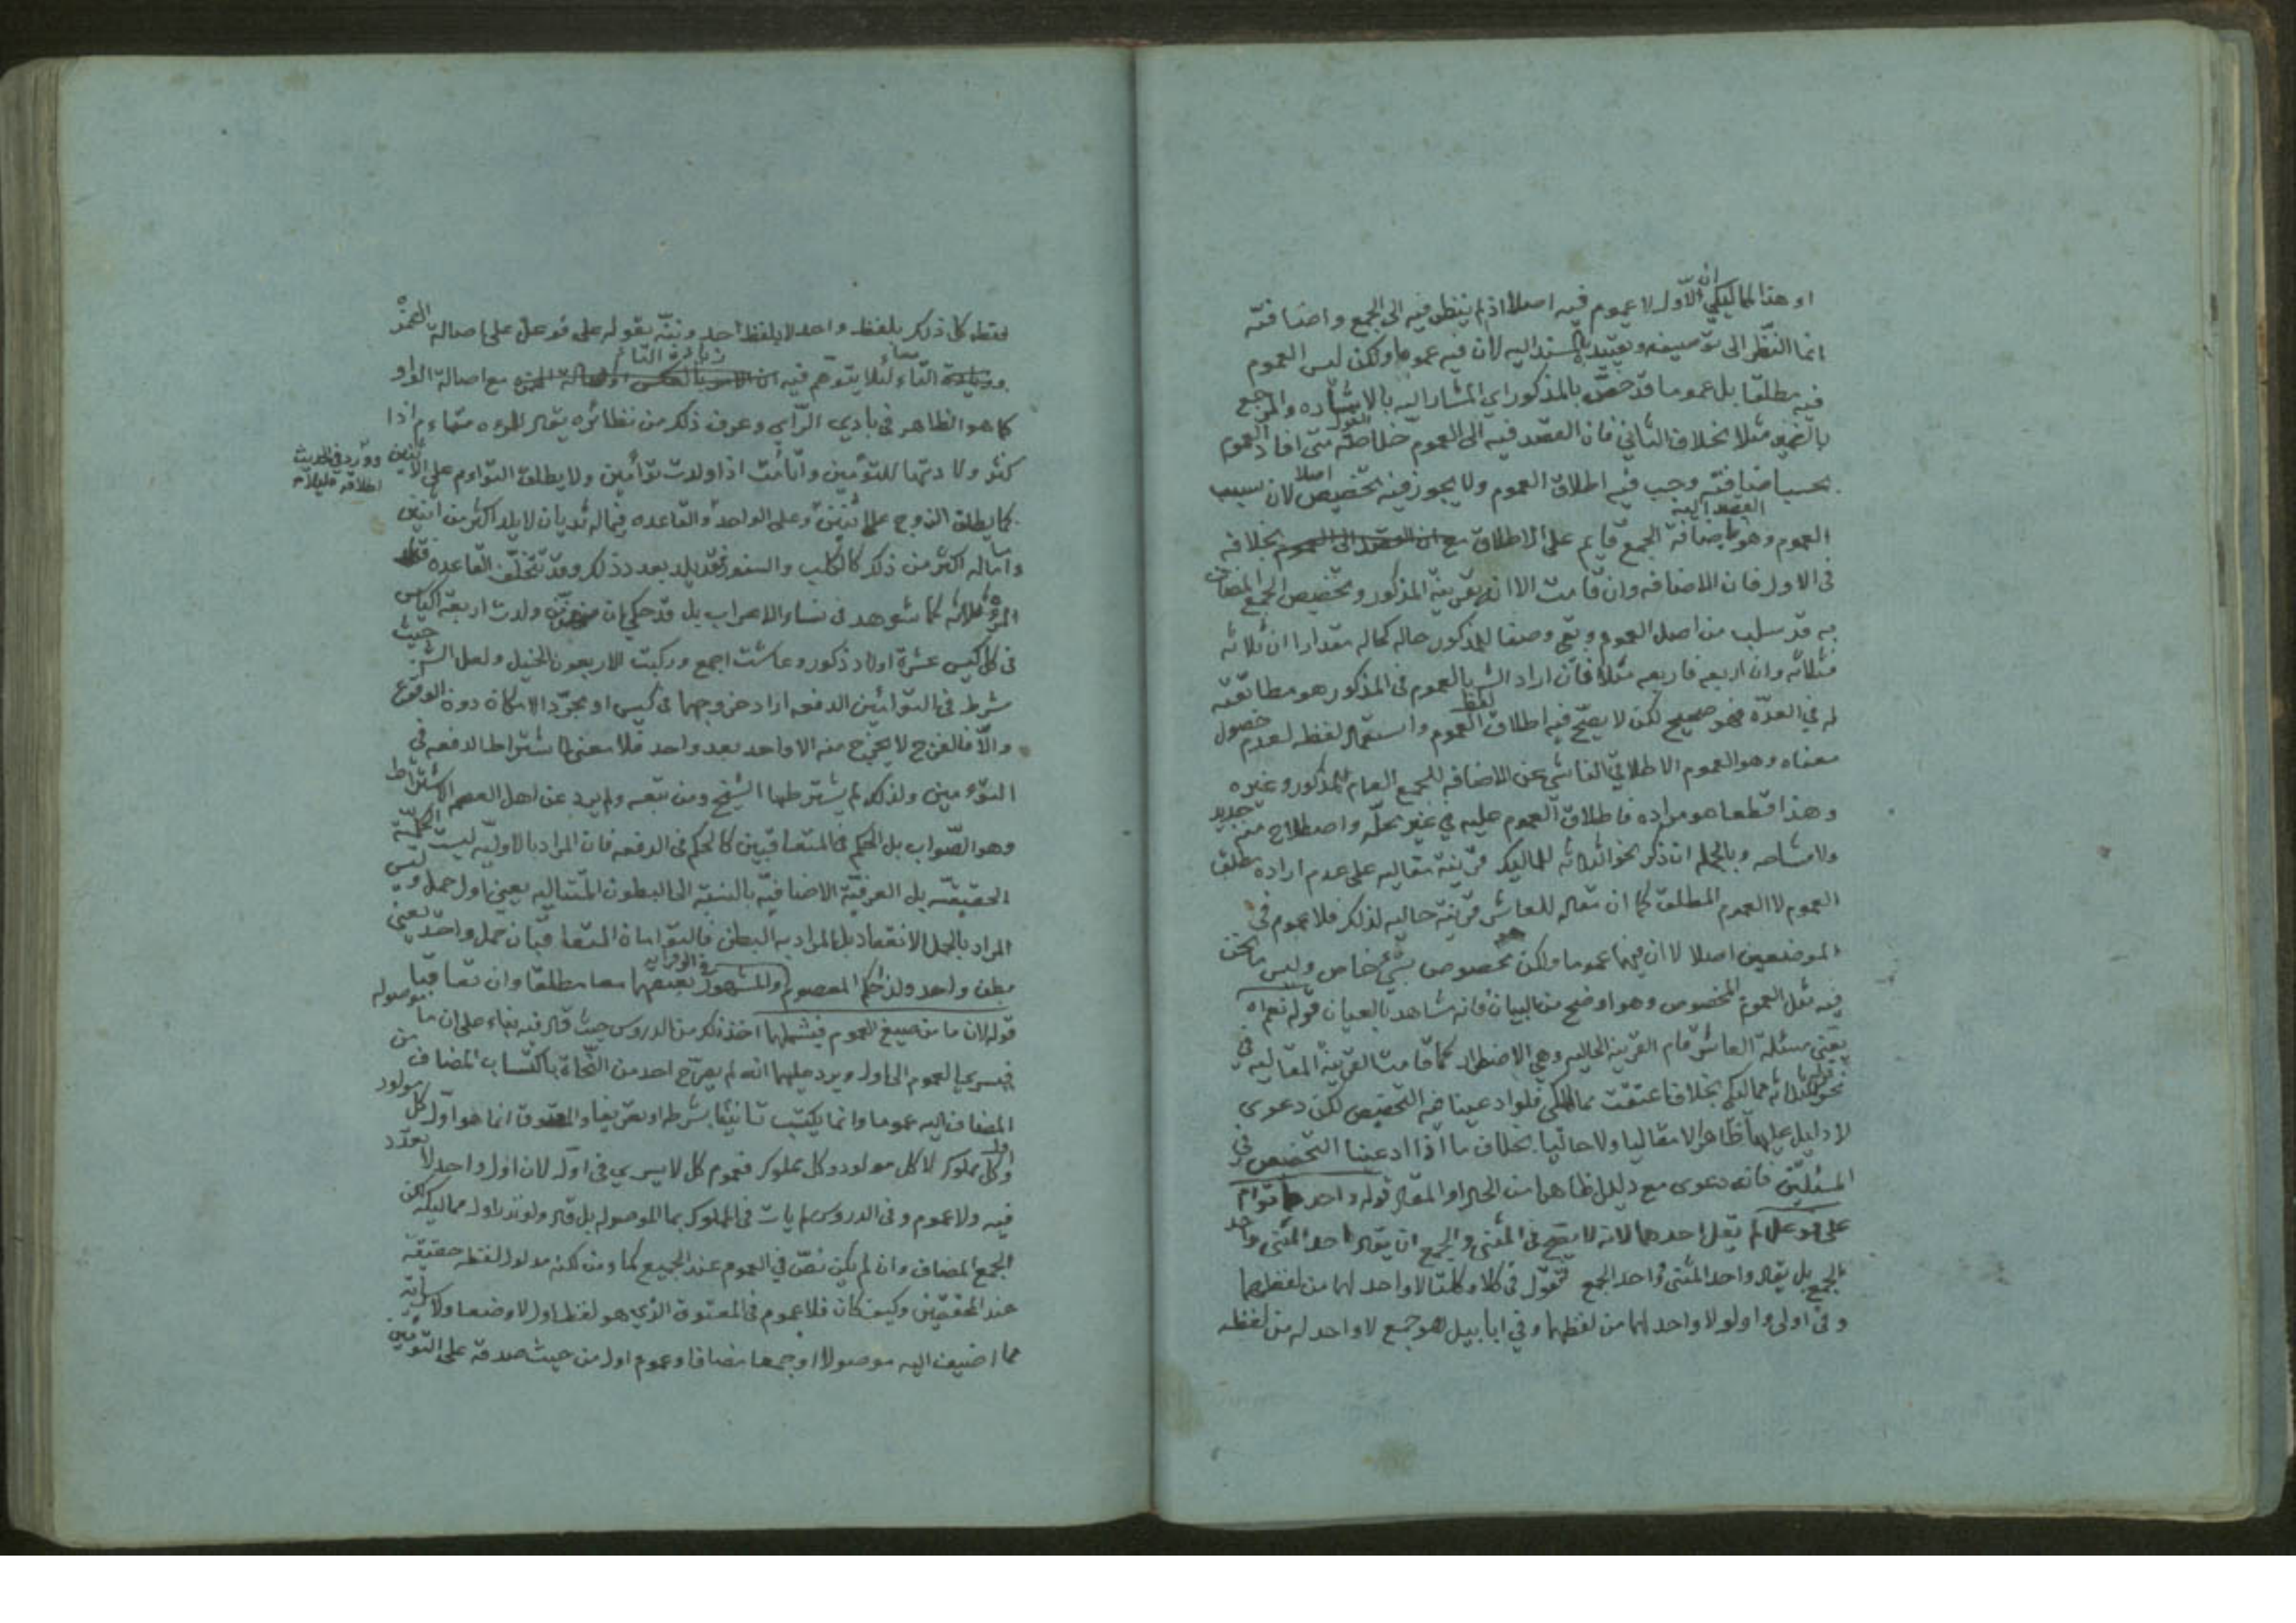 او هذا لمماليكي ان الاول لا عموم فيه اصلا اذ لم ينظر فيه الى الجمع واضافته
انما النظر الى توصيفه وتقييده بالمسند اليه لان فيه عموما ولكن ليس العموم
فيه مطلقا بل عموما قد خصّ بالمذكور اي المشار اليه بالاشاره والمرجع
بالضمير مثلا بخلاف الثاني فان القصد فيه الى العموم متى افاد العموم
بحسب اضافته وجب فيه اطلاق العموم ولا يجوز فيه تخصيص اصلا لان سبب
العموم وهو اضافة الجمع قايم على الاطلاق مع القصد اليه بخلافه
فى الاول فان الاضافه وان قامت الا انه بقرينة المذكور وتخصيص الجمع المضاف
به قد سلب من اصل العموم وبقى وصفا للمذكور حاله كحاله مقدارا ان ثلاثه
فثلاثه وان اربعه فاربعه مثلا فان اراد الش بالعموم فى المذكور هو مطابقته
له في العدّه فهو صحيح لكن لا يصحّ فيه اطلاق لفظ العموم واستعمال لفظه لعدم حصول
معناه وهو العموم الاطلاقي الناشي عن الاضافه للجمع العام للمذكور وغيره
وهذا قطعا هو مراده فاطلاق العموم عليه في غير محلّه واصطلاح منه جديد
ولا مشاحه وبالجمله ان ذكر نحو الثلاثه للماليك قرينة مقاليه على عدم اراده مطلق
العموم لا العموم المطلق كما ان مقاله للعاشر قرينة حاليه لذلك فلا عموم في
الموضعين اصلا لا ان فيهما عموما ولكن مخصوص بشئ خاص وليس ما نحن
فيه مثل العموم المخصوص وهو اوضح من البيان فانه شاهد بالعيان قوله نعم اه
يعني مسئلة العاشر قام القرينة الحاليه وهي الاضطرار كما قامت القرينة المقاليه في
نحو قوله ثلاثه مماليكي بخلاف اعتقت مماليكي فلو ادعينا فيه التخصيص لكن دعوى
لا دليل عليها ظاهرا لا مقاليا ولا حاليا بخلاف ما اذا ادعينا التخصيص في
المسئلتين فانه دعوى مع دليل ظاهر من الحال او المقال قوله واحدها توأم
على فوعل لم يقل احدهما لانه لا يصح فى المثنى والجمع ان يقال احد المثنى واحد
الجمع بل يقال واحد المثنى وواحد الجمع تقول فى كلا وكلتا لا واحد لهما من لفظهما
وفى اولى واولو لا واحد لهما من لفظهما وفي ابابيل هو جمع لا واحد له من لفظه
فقط كل ذلك بلفظ واحد لا بلفظ احد ونبّه بقوله على فوعل على اصالة الهمزه
زيادة التاء
التاء لئلا يتوهم فيه مع اصالة الواو
كما هو الظاهر فى بادي الرّاي وعرف ذلك من نظائره يقال للمرءه متئام اذا
كثر ولادتها للتوئمين واتأمت اذا ولدت توأمين ولا يطلق التوأم على الاثنين
وورد في الحديث
اطلاقه عليلاه
كما يطلق الزوج على اثنين وعلى الواحد والقاعده فيما له ثديان لا يلد اكثر من اثنين
واما له اكثر من ذلك كالكلب والسنور فقد يلد بعدد ذلك وقد تتخلّف القاعده
المرءه ثلاثه كما شوهد فى نساء الاعراب بل قد حكي ان ولدت اربعة اكياس
فى كل كيس عشرة اولاد ذكور وعاشت اجمع وركبت الاربعون الخيل ولعل الش حيث
شرط فى التوأمين الدفعه اراد خروجهما فى كيس او مجرّد الامكان دون الوقوع
والّا فالفرج لا يخرج منه الا واحد بعد واحد فلا معنى لاشتراط الدفعه في
التوءمين ولذلك لم يشترطها الشيخ ومن تبعه ولم يرد عن اهل العصمه الاشتراط
وهو الصّواب بل الحكم فى المتعاقبين كالحكم فى الدفعه فان المراد بالاوليّه ليست الكليّة
الحقيقيّه بل العرفيّة الاضافيّة بالنسبة الى البطون المتتاليه يعني اول حمل وليس
المراد بالحمل الانعقاد بل المراد به البطن فالتوأمان المتعاقبان حمل واحد يعني
بطن واحد ولذا حكم المعصوم والمشهور في الروايه بعتقهما معا مطلقا وان تعاقبا
قوله لان ما من صيغ العموم فيشملهما اخذ ذلك من الدروس حيث قال فيه بناء على ان ما موصوله
فيسري العموم الى اول ويرد عليهما انه لم يصرّح احد من النّحاة باكتساب المضاف من
المضاف اليه عموما وانما يكتسب تانيثا بشرطه او تعريفا والمعتوق انما هو اوّل كل مولود
واول كل مملوك لا كل مولود وكل مملوك فعموم كل لا يسري فى اوّله لان اوّل واحد لا تعدّد
فيه ولا عموم وفى الدروس لم يات فى المملوك بما الموصوله بل قال ولو نذر اول مماليكه لكن
الجمع المضاف وان لم يكن نصّ في العموم عند الجميع كما ومن لكنه مدلول لفظه حقيقة
عند المحققين وكيف كان فلا عموم فى المعتوق الذي هو لفظ اول لا وضعا ولا سرايّه
مما اضيف اليه موصولا او جمعا مضافا وعموم اول من حيث صدقه على التوئمين